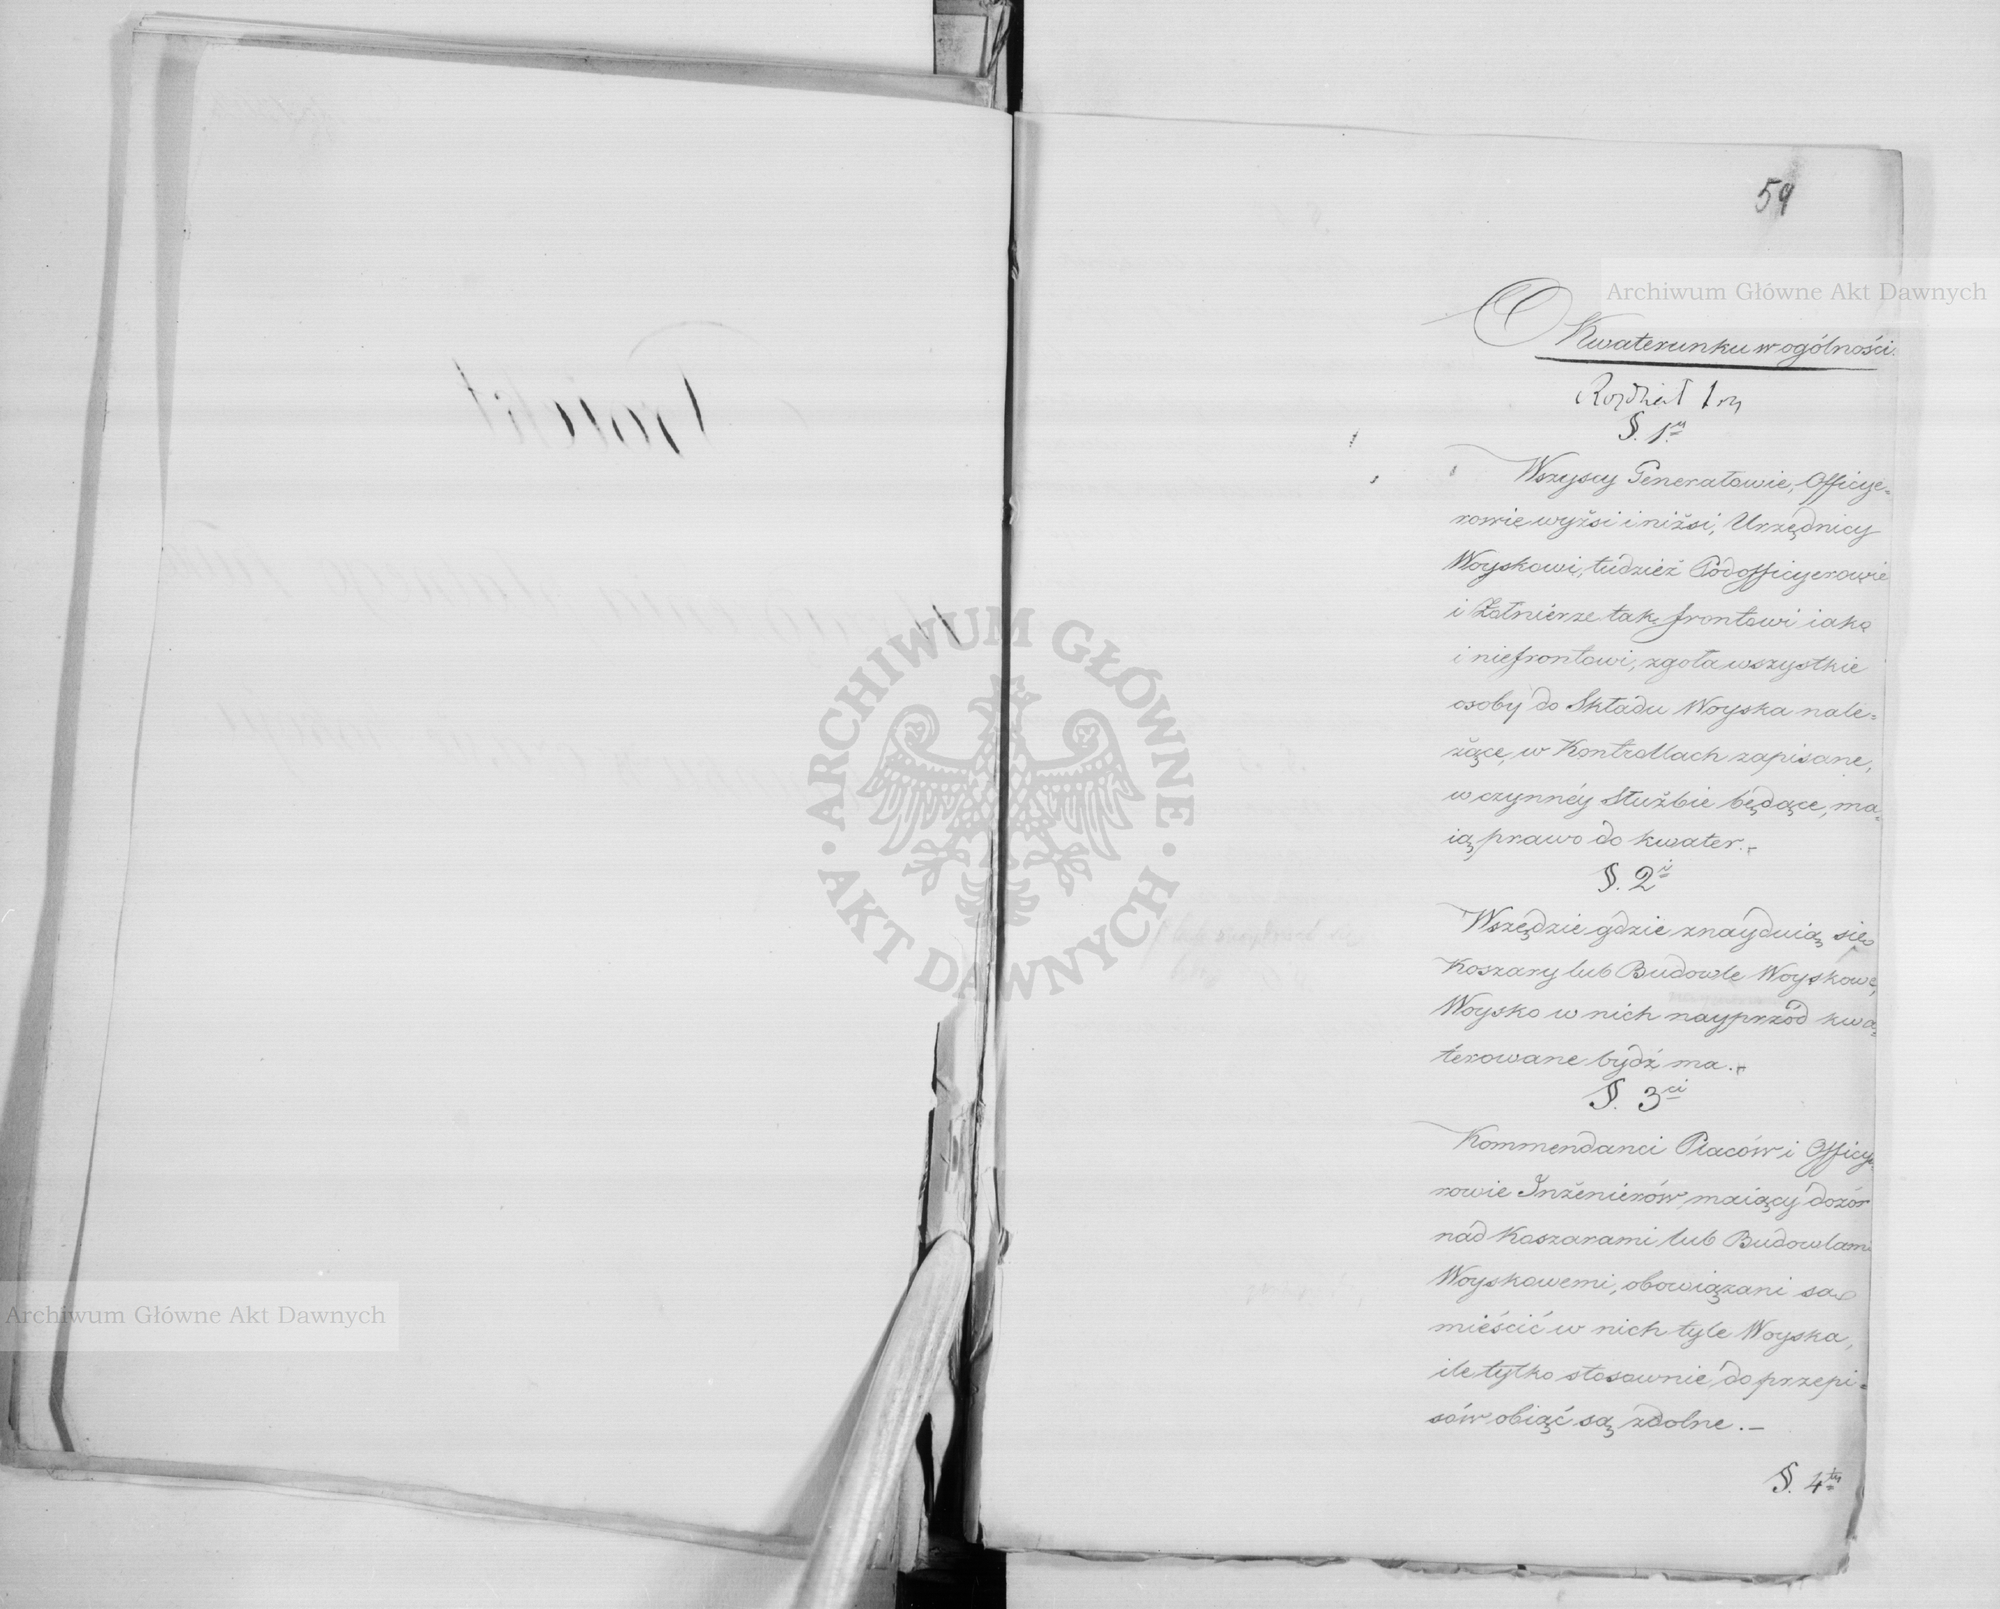 59
O Kwaterunku w ogólności.
Rozdział 1szy
§. 1.y
Wszyscy Generałowie, Officye-
rowie wyżsi i niżsi, Urzędnicy
Woyskowi, tudzież Podofficyerowie
i Żołnierze tak frontowi iako
i niefrontowi, zgoła wszystkie
osoby do Składu Woyska nale-
żące, w Kontrollach zapisane,
w czynnéy Służbie będące, ma-
ią prawo do kwater.-
§. 2i
Wszędzie gdzie znayduią się
Koszary lub Budowle Woyskowe,
Woysko w nich nayprzód kwa-
terowane bydź ma.-
§. 3ci
Kommendanci Placów i Officye-
rowie Inżenierów maiący dozór
nad Koszarami lub Budowlami
Woyskowemi, obowiązani są
mieścić w nich tyle Woyska,
ile tylko stosownie do przepi-
sów obiąć są zdolne.-
§. 4ty
Archiwum Główne Akt Dawnych
Archiwum Główne Akt Dawnych
ARCHIWUM GŁÓWNE AKT DAWNYCH